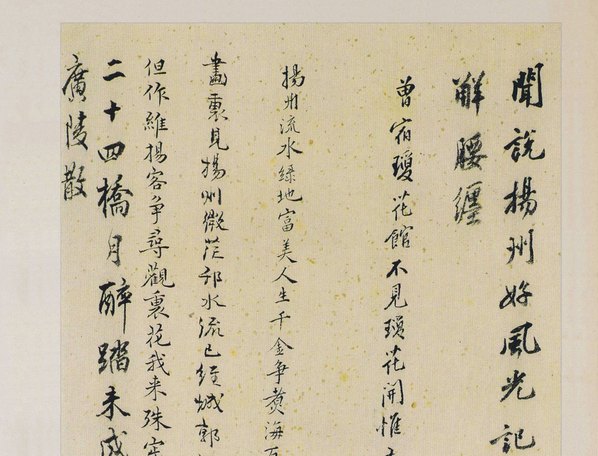 聞說揚州好風光記
解腰纏
曾宿瓊花館不見瓊花開惟
揚州流水綠地富美人生千金爭賣海
畫裏見揚州微茫邗水流已經城郭
但作維揚客爭尋觀裏花我来殊
二十四橋月醉踏未成
廣陵散